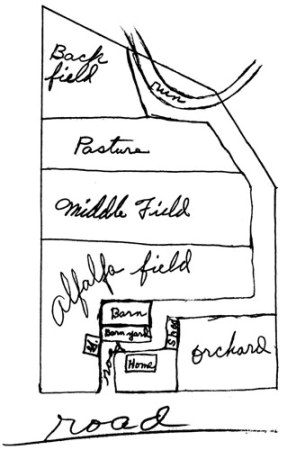 Back
field
run
Pasture
Middle Field
Alfalfa field
Barn
Barn yard
Shed
road
Home
orchard
road